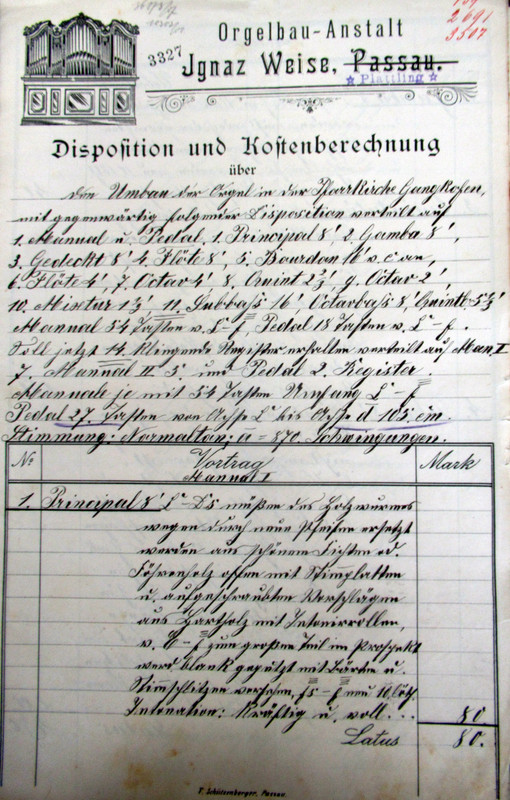 2691
3507
3327
Orgelbau-Anstalt
Jgnaz Weise, Passau.
☆ Plattling ☆
Disposition und Kostenberechnung
über
den Umbau der Orgel in der Pfarrkirche Gangkofen,
mit gegenwärtig folgender Disposition verteilt auf
1. Manual u. Pedal. 1. Principal 8', 2. Gamba 8',
3. Gedeckt 8', 4. Flöte 8', 5. Bourdon 16' v. c an,
6. Flöte 4', 7. Octav 4', 8. Quint 2⅔', 9. Octav 2',
10. Mixtur 1⅓', 11. Subbaß 16', Octavbaß 8', Quintb. 5⅓'
Manual 54 Tasten v. C – f, Pedal 18 Tasten v. C – f.
Soll jetzt 14 klingende Register erhalten verteilt auf Man. I
7, Manual II 5. und Pedal 2. Register.
Manuale je mit 54 Tasten Umfang C – f
Pedal 27 Tasten von C bis d 105 cm.
Stimmung: Normalton: a = 870 Schwingungen.
No Vortrag Mark
Manual I
1. Principal 8' C – Ds müßen des Holzwurmes
wegen durch neue Pfeifen ersetzt
werden aus schönem Fichten od.
Föhrenholz offen mit Stimmplatten
u. aufgeschraubten Vorschlägen
aus Hartholz mit Intonirrollen,
v. E – f zum großen Teil im Prospekt
werd blank geputzt mit Bärten u.
Stimmschlitzen versehen, fs – f neu 10 löth.
Intonation: kräftig u. voll ... 80.
Latus 80.
F. Schützenberger, Passau.